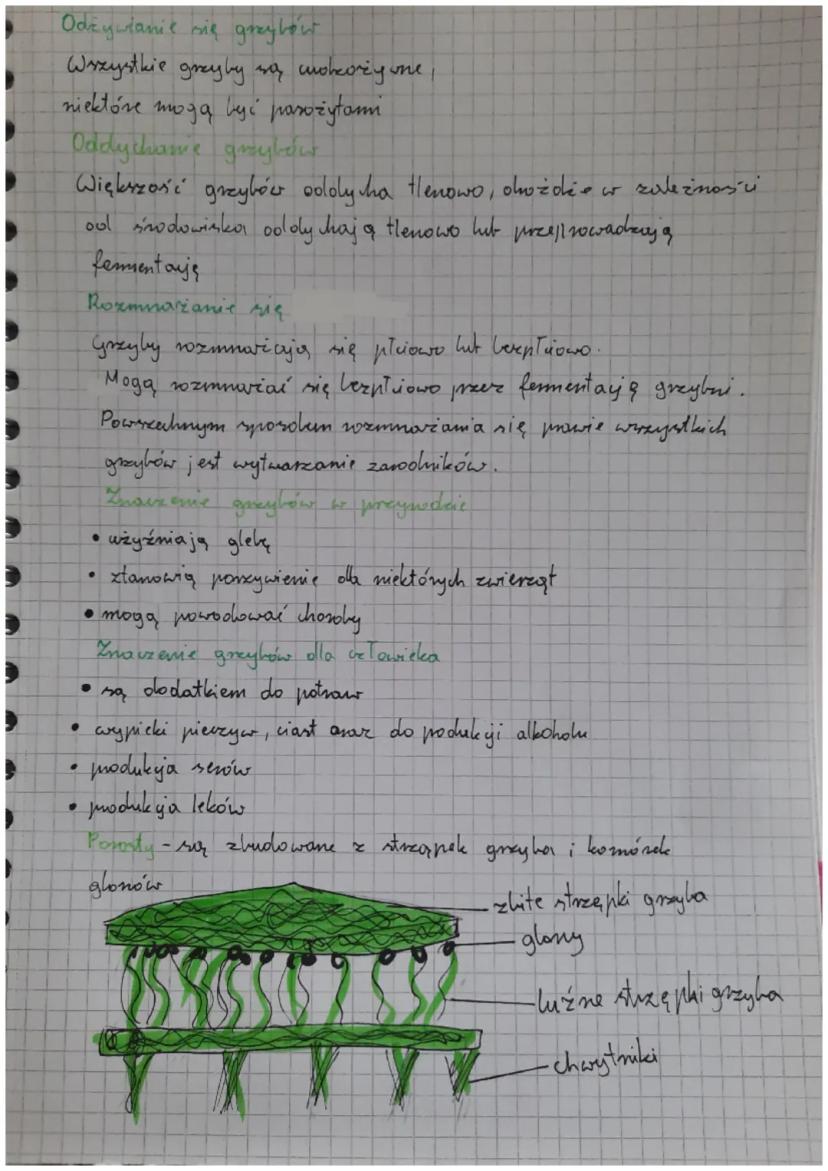 Odżywianie się grzybów
Wszystkie grzyby są cudzożywne,
niektóre mogą być pasożytami
Oddychanie grzybów
Większość grzybów oddycha tlenowo, drożdże w zależności
od środowiska oddychają tlenowo lub przeprowadzają
fermentację
Rozmnażanie się
Grzyby rozmnażają się płciowo lub bezpłciowo.
Mogą rozmnażać się bezpłciowo przez fermentację grzybni.
Powszechnym sposobem rozmnażania się prawie wszystkich
grzybów jest wytwarzanie zarodników.
Znaczenie grzybów w przyrodzie
• użyźniają glebę
• stanowią pożywienie dla niektórych zwierząt
• mogą powodować choroby
Znaczenie grzybów dla człowieka
• są dodatkiem do potraw
• wypieki pieczyw, ciast oraz do produkcji alkoholu
• produkcja serów
• produkcja leków
Porosty - są zbudowane z strzępek grzyba i komórek
glonów
zbite strzępki grzyba
glony
luźne strzępki grzyba
chwytniki